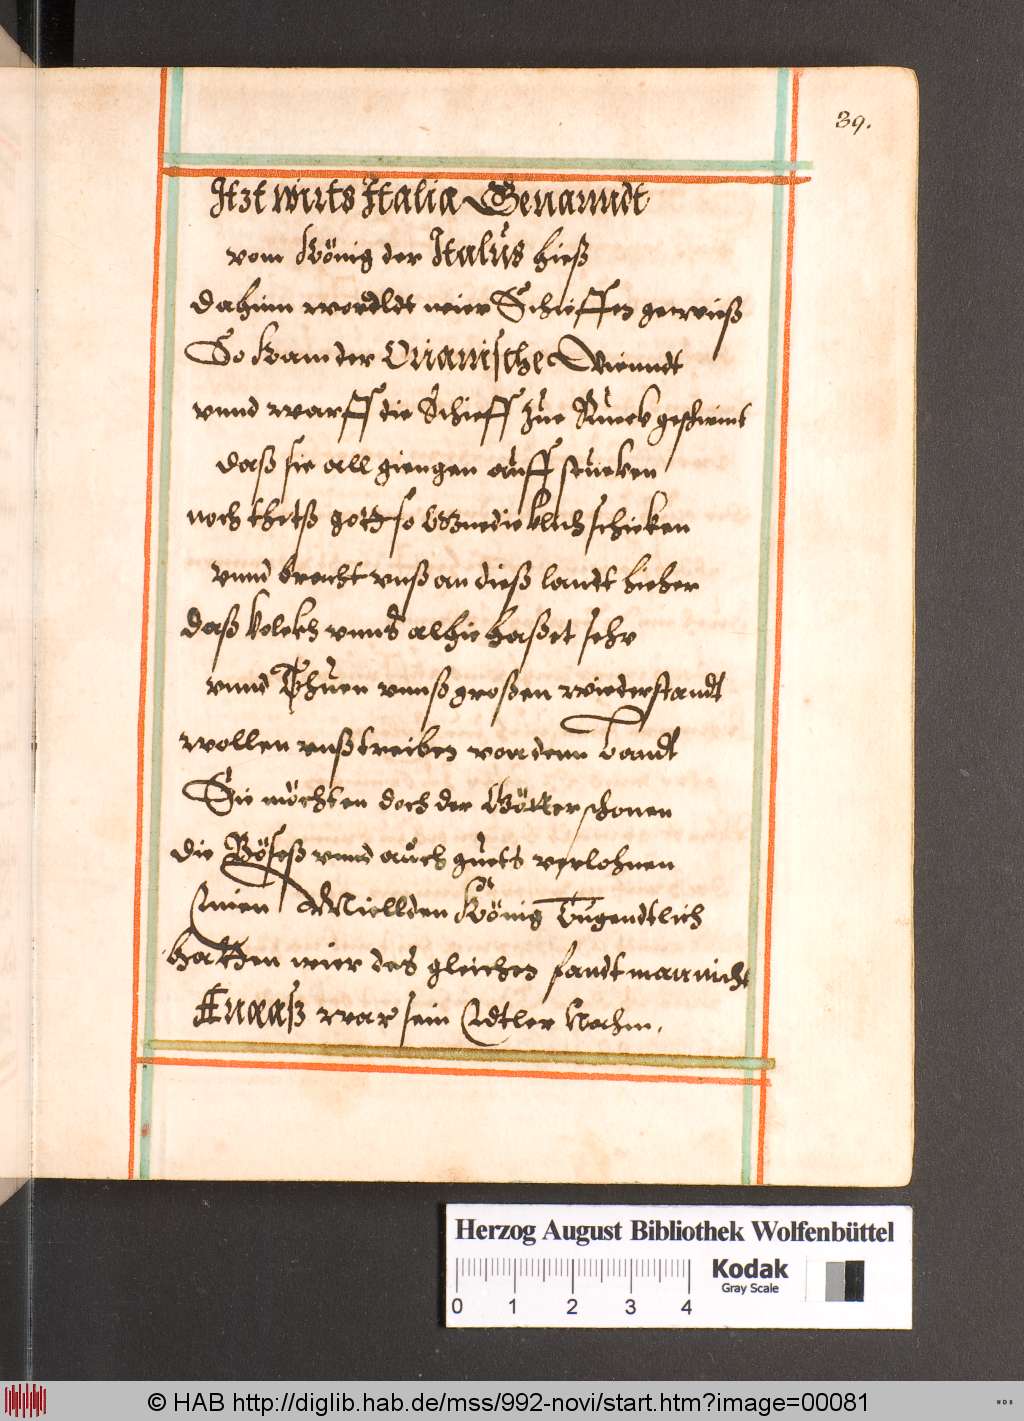 39.
Itzt wirts Italia Genanndt
vom König der Italus hieß
dahinn wordldt wier Schieffen gewieß
So kam der Orianische Wienndt
vnnd warff die Schieff zue Rueck geschwint
daß sie all giengen auff stucken
noch thetß gott so schicken
vnnd bracht vnß an dieß landt hieher
daß volckh vnns alhie haßet sehr
vnnd Thuen vnnß großen wiederstandt
wollen vnß treiben von denn Landt
Sie möchten doch der Götter schonen
die Böseß vnnd auch guets verlohnen
Einen Miellden König Tugendtlich
hatten wier des gleichen fandt man nicht
Eneaß war sein Edtler Nahm.
Herzog August Bibliothek Wolfenbüttel
Kodak
Gray Scale
0 1 2 3 4
© HAB http://diglib.hab.de/mss/992-novi/start.htm?image=00081